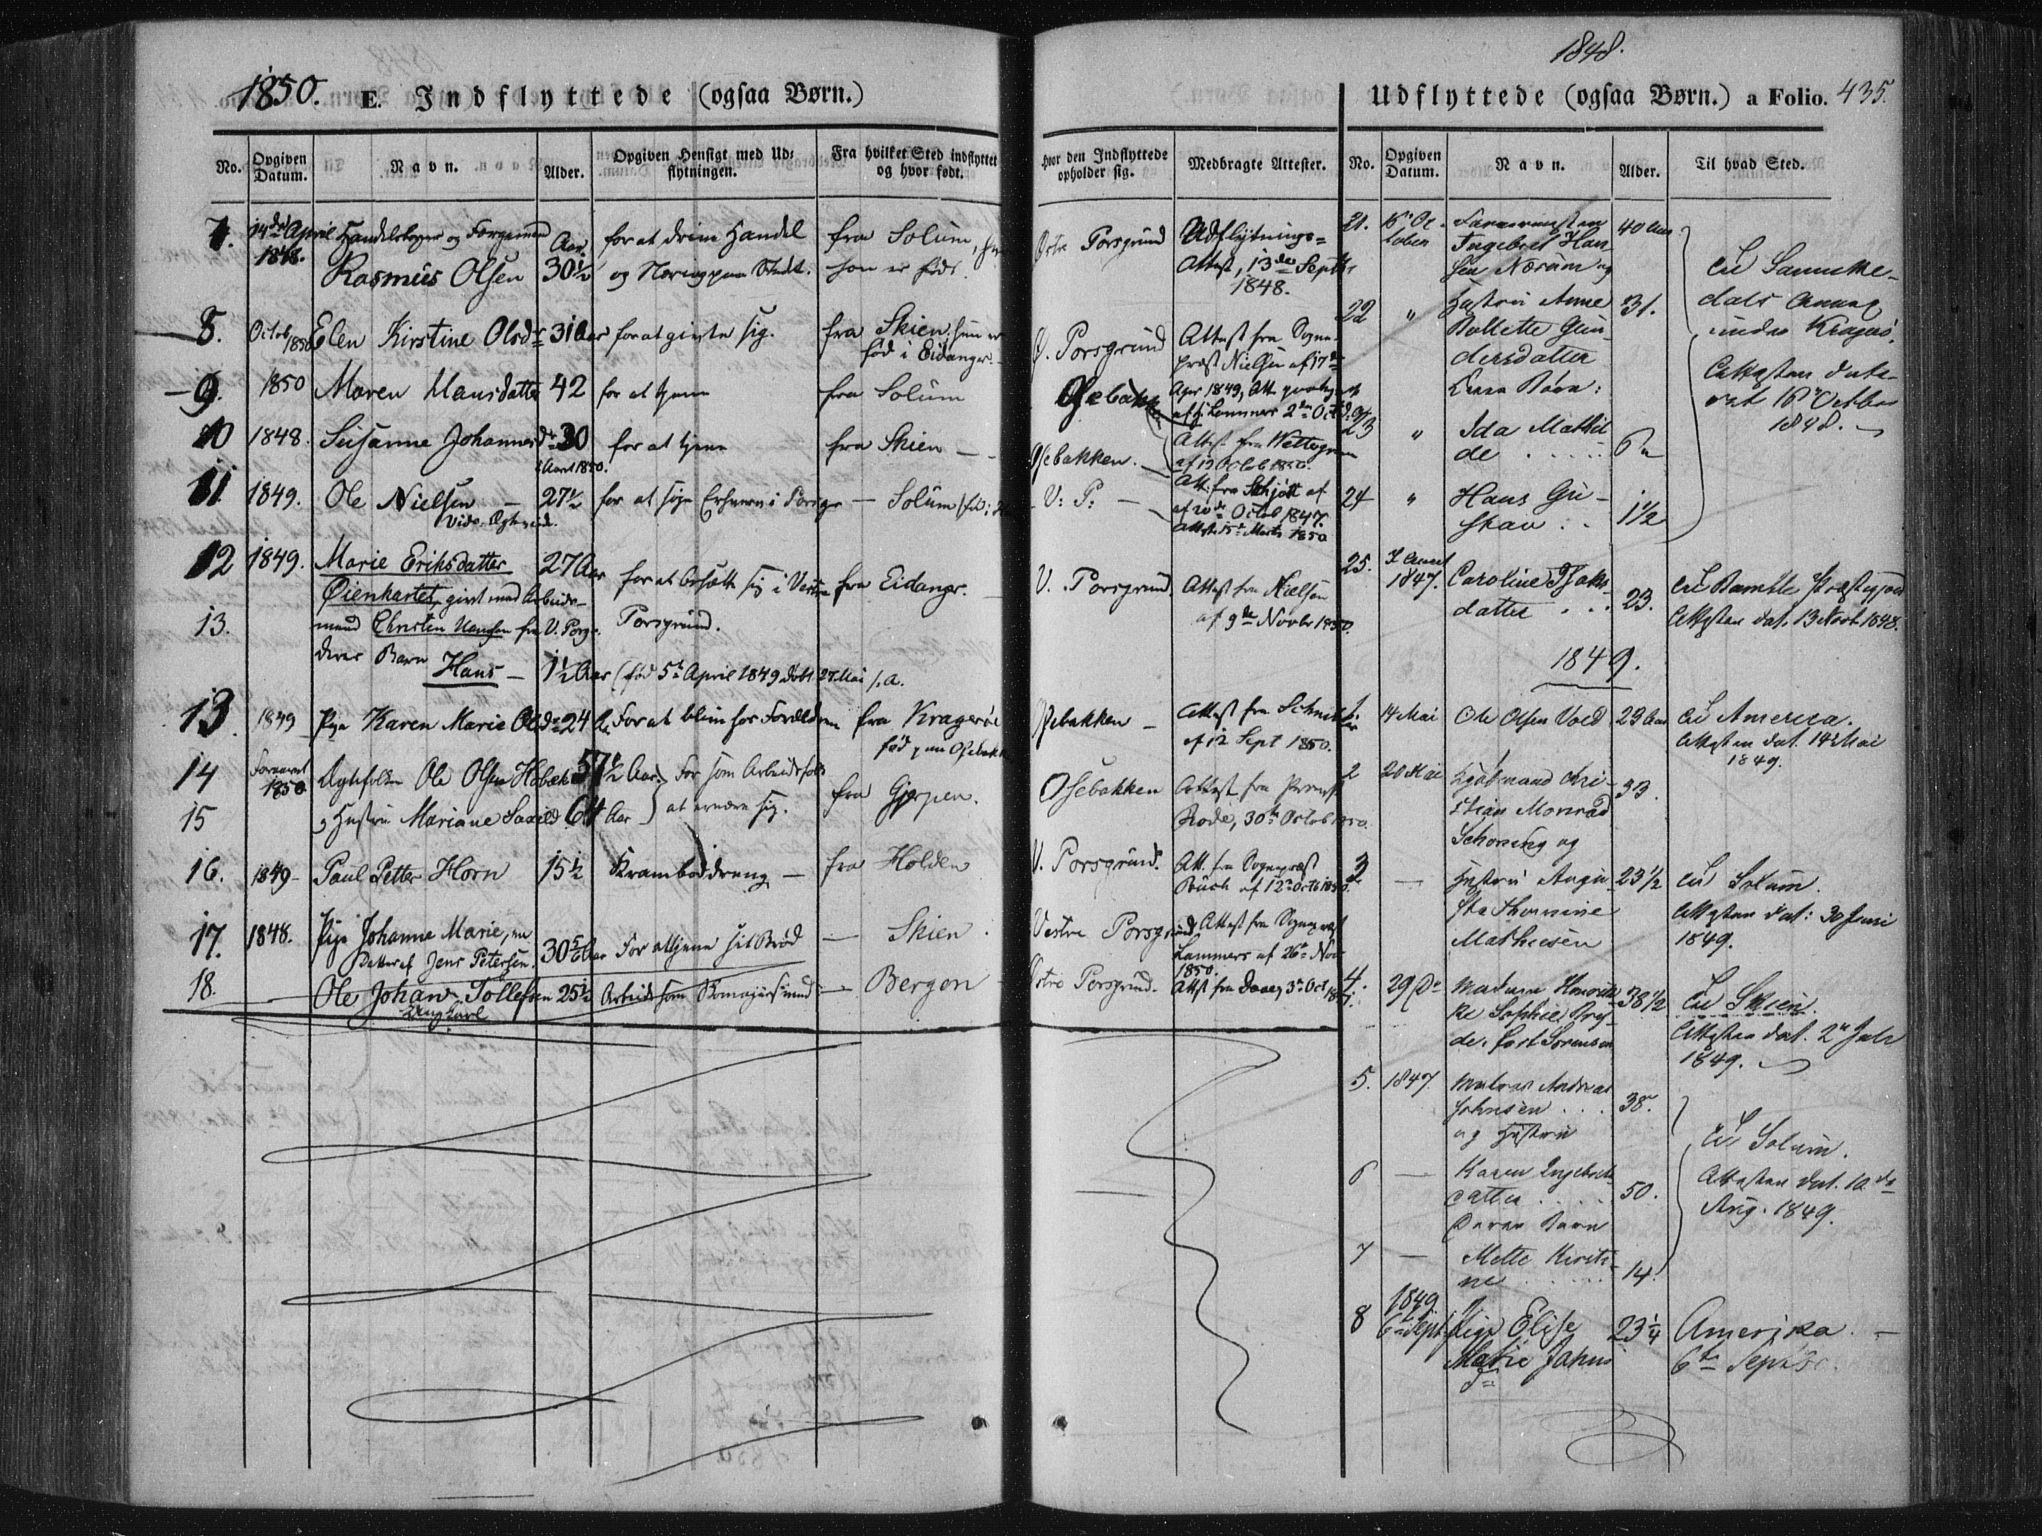 1850.
E. Indflyttede (ogsaa Børn.)
No.
Opgiven Datum.
Navn.
Alder.
Opgiven Hensigt med Udflytningen.
Fra hvilket Sted indflyttet og hvor født.
7. 14de April Handelsborger og Aar for at drive Handel fra Solum,
1848. Rasmus Olsen 30½ og Næring paa Stedet. hvor er født.
8. Octob 1850 Elen Kirstine Olsdr 31 Aar for at givte sig. fra Skien, hun er
fød i Eidanger.
9. 1850 Maren Hansdatter 42 for at tjene fra Solum
10 1848. Susanne Johannesdr 30 for at tjene fra Skien
Aaret 1850.
11 1849. Ole Nielsen 27½ for at søge Erhverv i Porsgr — Solum
12 1849. Marie Eriksdatter 27 Aar for at bosætte sig i Vestre fra Eidanger.
Øienkastet, givt med Arbeids- Porsgrund.
13. mand Christen Hansen fra V. Porsgr.
deres Barn
Hans — 1½ Aar (fød 5te April 1849 døbt 27 Mai s.a.
13 1849 Pige Karen Marie Olsdr 24 Aar For at blive hos Forældrene fra Kragerøe
fød paa Osebak
14 Foraaret 1850 Ægtefolk Ole Olsen 57½ Aar For som Arbeidsfolk
15 og Hustru Mariane 64 Aar at ernære sig. fra Gjerpen.
16. 1849 Paul Petter Horn 15½ Kramboddreng — fra Holden
17. 1848. Pige Johanne Marie,
Datter af Jens Petersen. 30 Aar For at tjene sit Brød — Skien.
18. Ole Johan Tollefsen 25½ Arbeide som — Bergen
Ungkarl
Hvor den Indflyttede opholder sig.
Medbragte Attester.
Østre Porsgrund Udflytnings-
Attest, 13de Septbr
1848.
Ø. Porsgrund Attest fra Sogne-
præst Nielsen af 17de
Osebakken Apr 1849, Att
af Lammers 2den Oct
Osebakken. Attest fra
af 19 Octob 1850.
V: P: — Att. fra Schjøtt af
af 20de Octob 1847.
Attest 15de Marts 1850
V. Porsgrund. Attest fra Nielsen
af 9de Novbr 1850.
Osebakken — Attest fra
af 12 Sept 1850.
Osebakken Attest fra Provst
Rode, 30te Octob 1850.
V. Porsgrund. Att. fra Sognepræst
Buch af 12te Octb 1850.
Vestre Porsgrund, Attest fra Sognepræst
Lammers af 26de Nov
1850.
Østre Porsgrund. Attest fra Daae, 3de Oct
1848.
Udflyttede (ogsaa Børn.) a Folio. 435.
No.
Opgiven Datum.
Navn.
Alder.
Til hvad Sted.
21. 16de Oc- 40 Aar
tober Ingebret Han-
sen Nærum og
22 " Hustru Anne 31.
Gun-
dersdatter
Deres Børn:
23 " Ida Mathil-
de . . . . 6
24 " Hans Gu-
stav . . 1½
til Sannike-
dals Annex
under Kragerø.
Attesten date-
ret 16de Octbr
1848.
25. 1847. Caroline Isaks-
datter . . . 23. til Bamble Præstegjeld
Attesten dat. 13 Novb. 1848.
1849.
1 14 Mai Ole Olsen Vold 29 Aar til America.
Attesten dat. 14 Mai
1849.
2 20 Mai Kjøbmand Chri- 33.
stian Monrad
Schøning og
3 — Hustru Augu- 23½ til Solum.
sta Thomine Attesten dat: 30 Juni
Mathiesen 1849.
4. 29 Do Madame Henrik- 38½ til Skien.
ke Sophie
født Sørensen Attesten dat. 2den Juli
1849.
5. 1847. Matros Andreas
Johnsen . . . 38.
og Hustru
6 — Karen Ingebrets-
datter . . . 50.
Deres Barn
7 — Mette Kirsti-
ne . . . . 14.
til Solum.
Attesten dat. 10de
Aug. 1849.
8 1849. 6te Sept. Pige Elise 23¼ Amerika. —
Marie Jahns 6te Septbr.